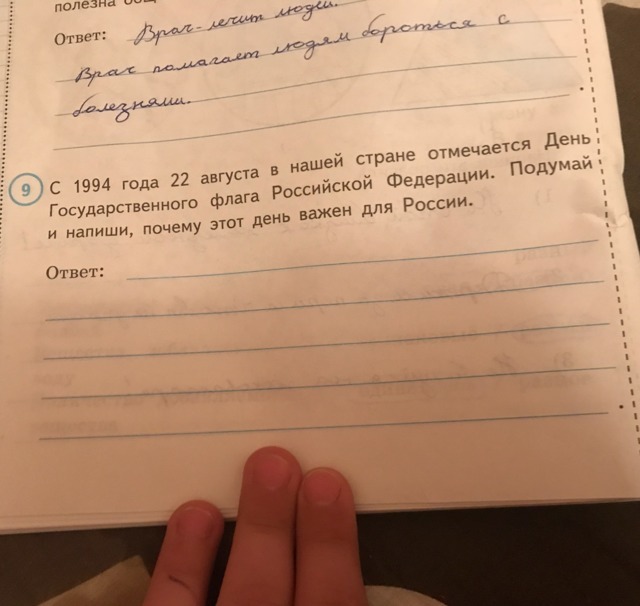 полезна общ
Ответ: Врач-лечит людей.
Врач помагает людям бороться с
болезнями.
.
9 С 1994 года 22 августа в нашей стране отмечается День
Государственного флага Российской Федерации. Подумай
и напиши, почему этот день важен для России.
Ответ:
.